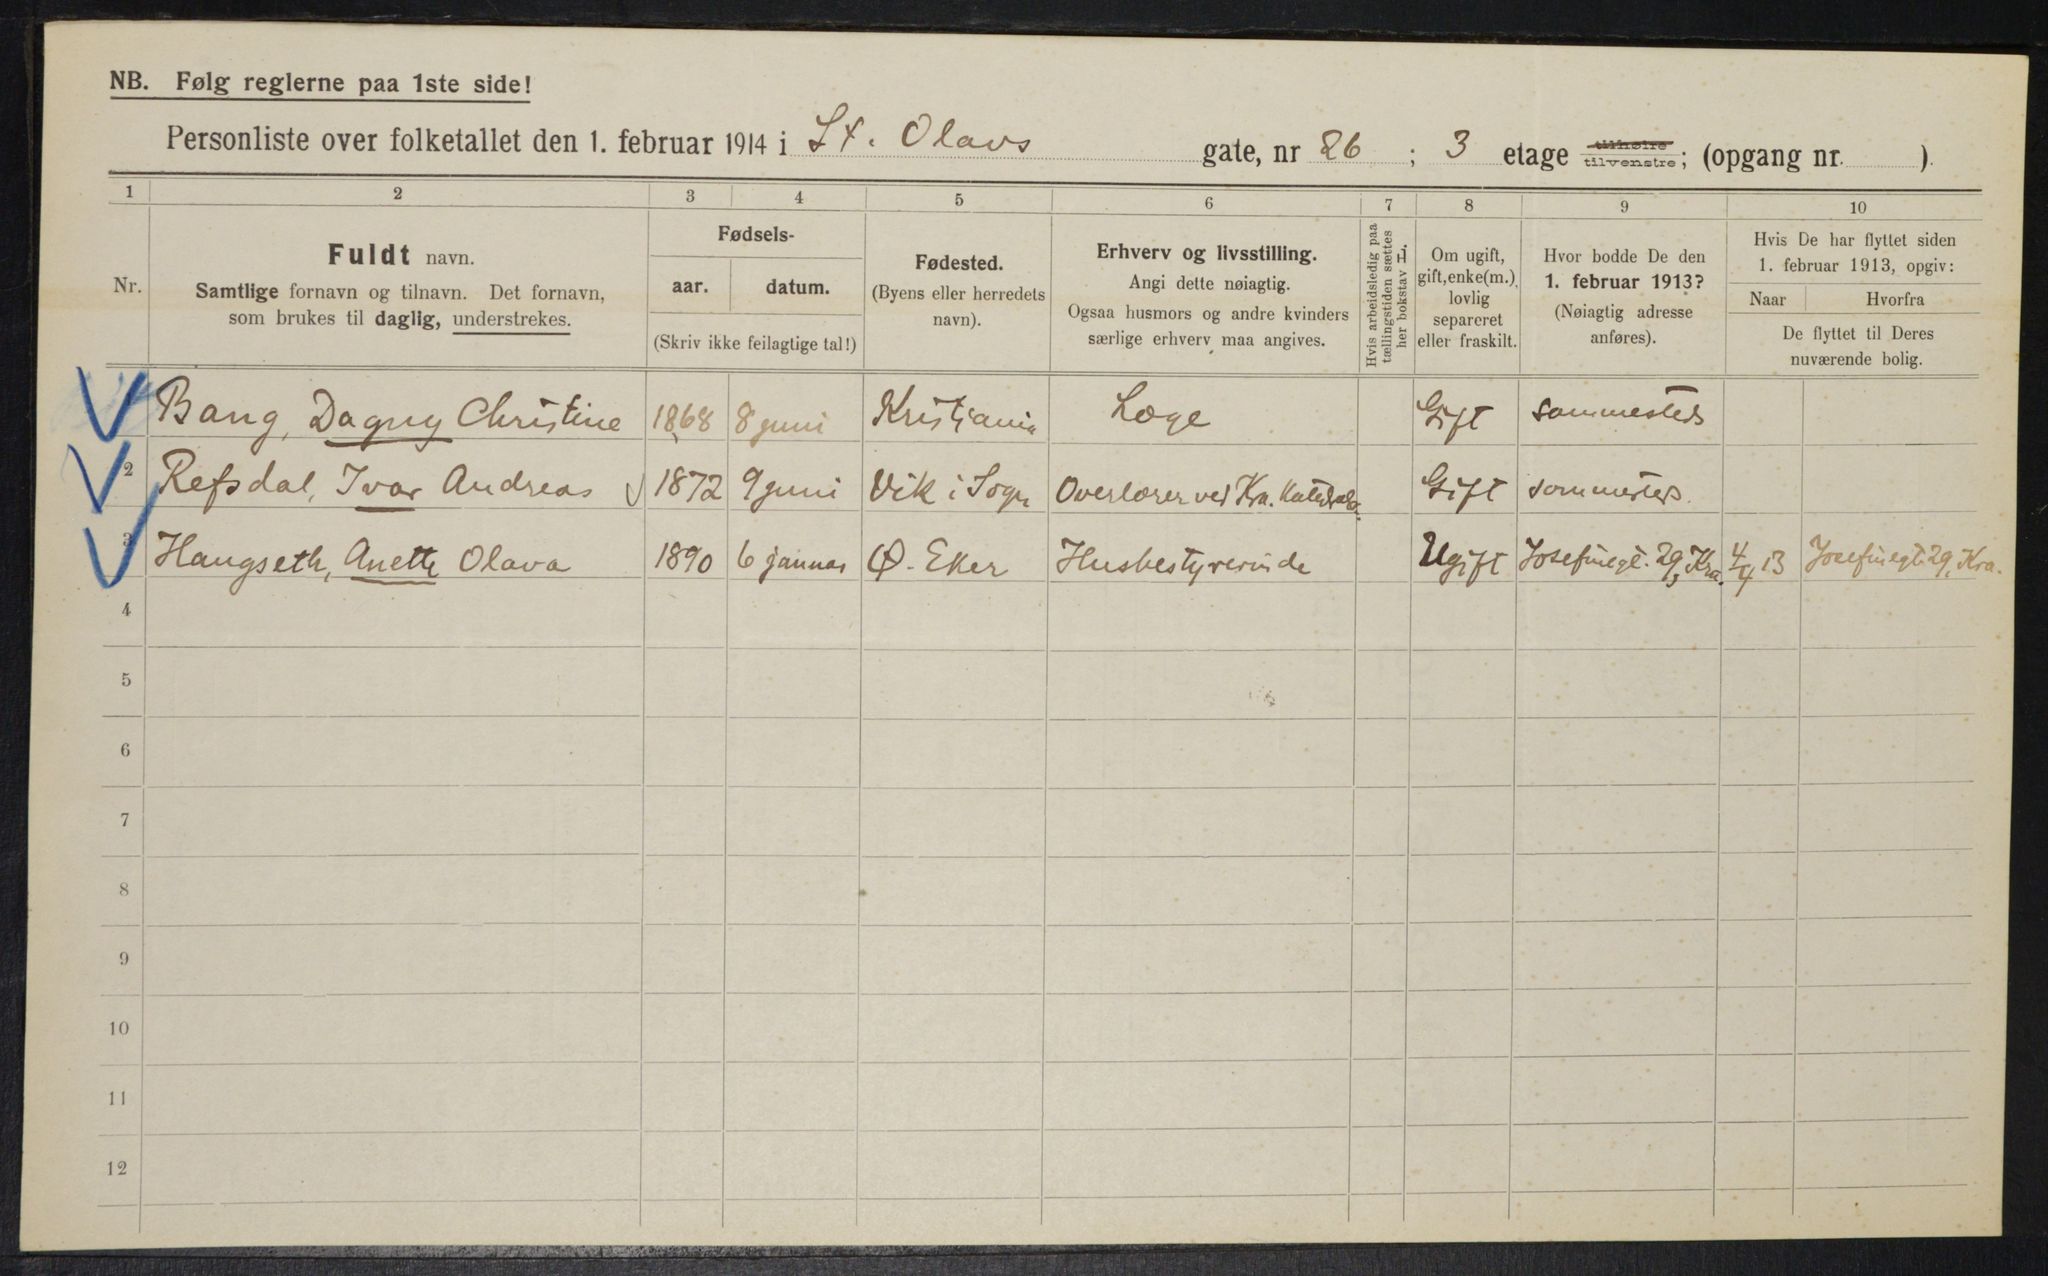 NB. Følg reglerne paa 1ste side!
Personliste over folketallet den 1. februar 1914 i St. Olavs gate, nr 26 ; 3 etage tilhøire tilvenstre; (opgang nr. ).
1 2 3 4 5 6 7 8 9 10
Nr.
Fuldt navn.
Samtlige fornavn og tilnavn. Det fornavn,
som brukes til daglig, understrekes.
Fødsels-
aar. datum.
(Skriv ikke feilagtige tal!)
Fødested.
(Byens eller herredets
navn).
Erhverv og livsstilling.
Angi dette nøiagtig.
Ogsaa husmors og andre kvinders
særlige erhverv maa angives.
Hvis arbeidsledig paa
tællingstiden sættes
her bokstav L.
Om ugift,
gift, enke(m.),
lovlig
separeret
eller fraskilt.
Hvor bodde De den
1. februar 1913?
(Nøiagtig adresse
anføres).
Hvis De har flyttet siden
1. februar 1913, opgiv:
Naar Hvorfra
De flyttet til Deres
nuværende bolig.
Bang, Dagny Christine 1868 8 juni Kristiania Læge Gift sammesteds
2 Refsdal, Ivar Andreas 1872 9 juni Vik i Sogn Overlærer ved Kra. Gift sammesteds.
3 Haugseth, Anette Olava 1890 6 januar Ø. Eker Husbestyrerinde Ugift Josefinegt. 29, Kra. 4/4 13 Josefinegt. 29, Kra.
4
5
6
7
8
9
10
11
12